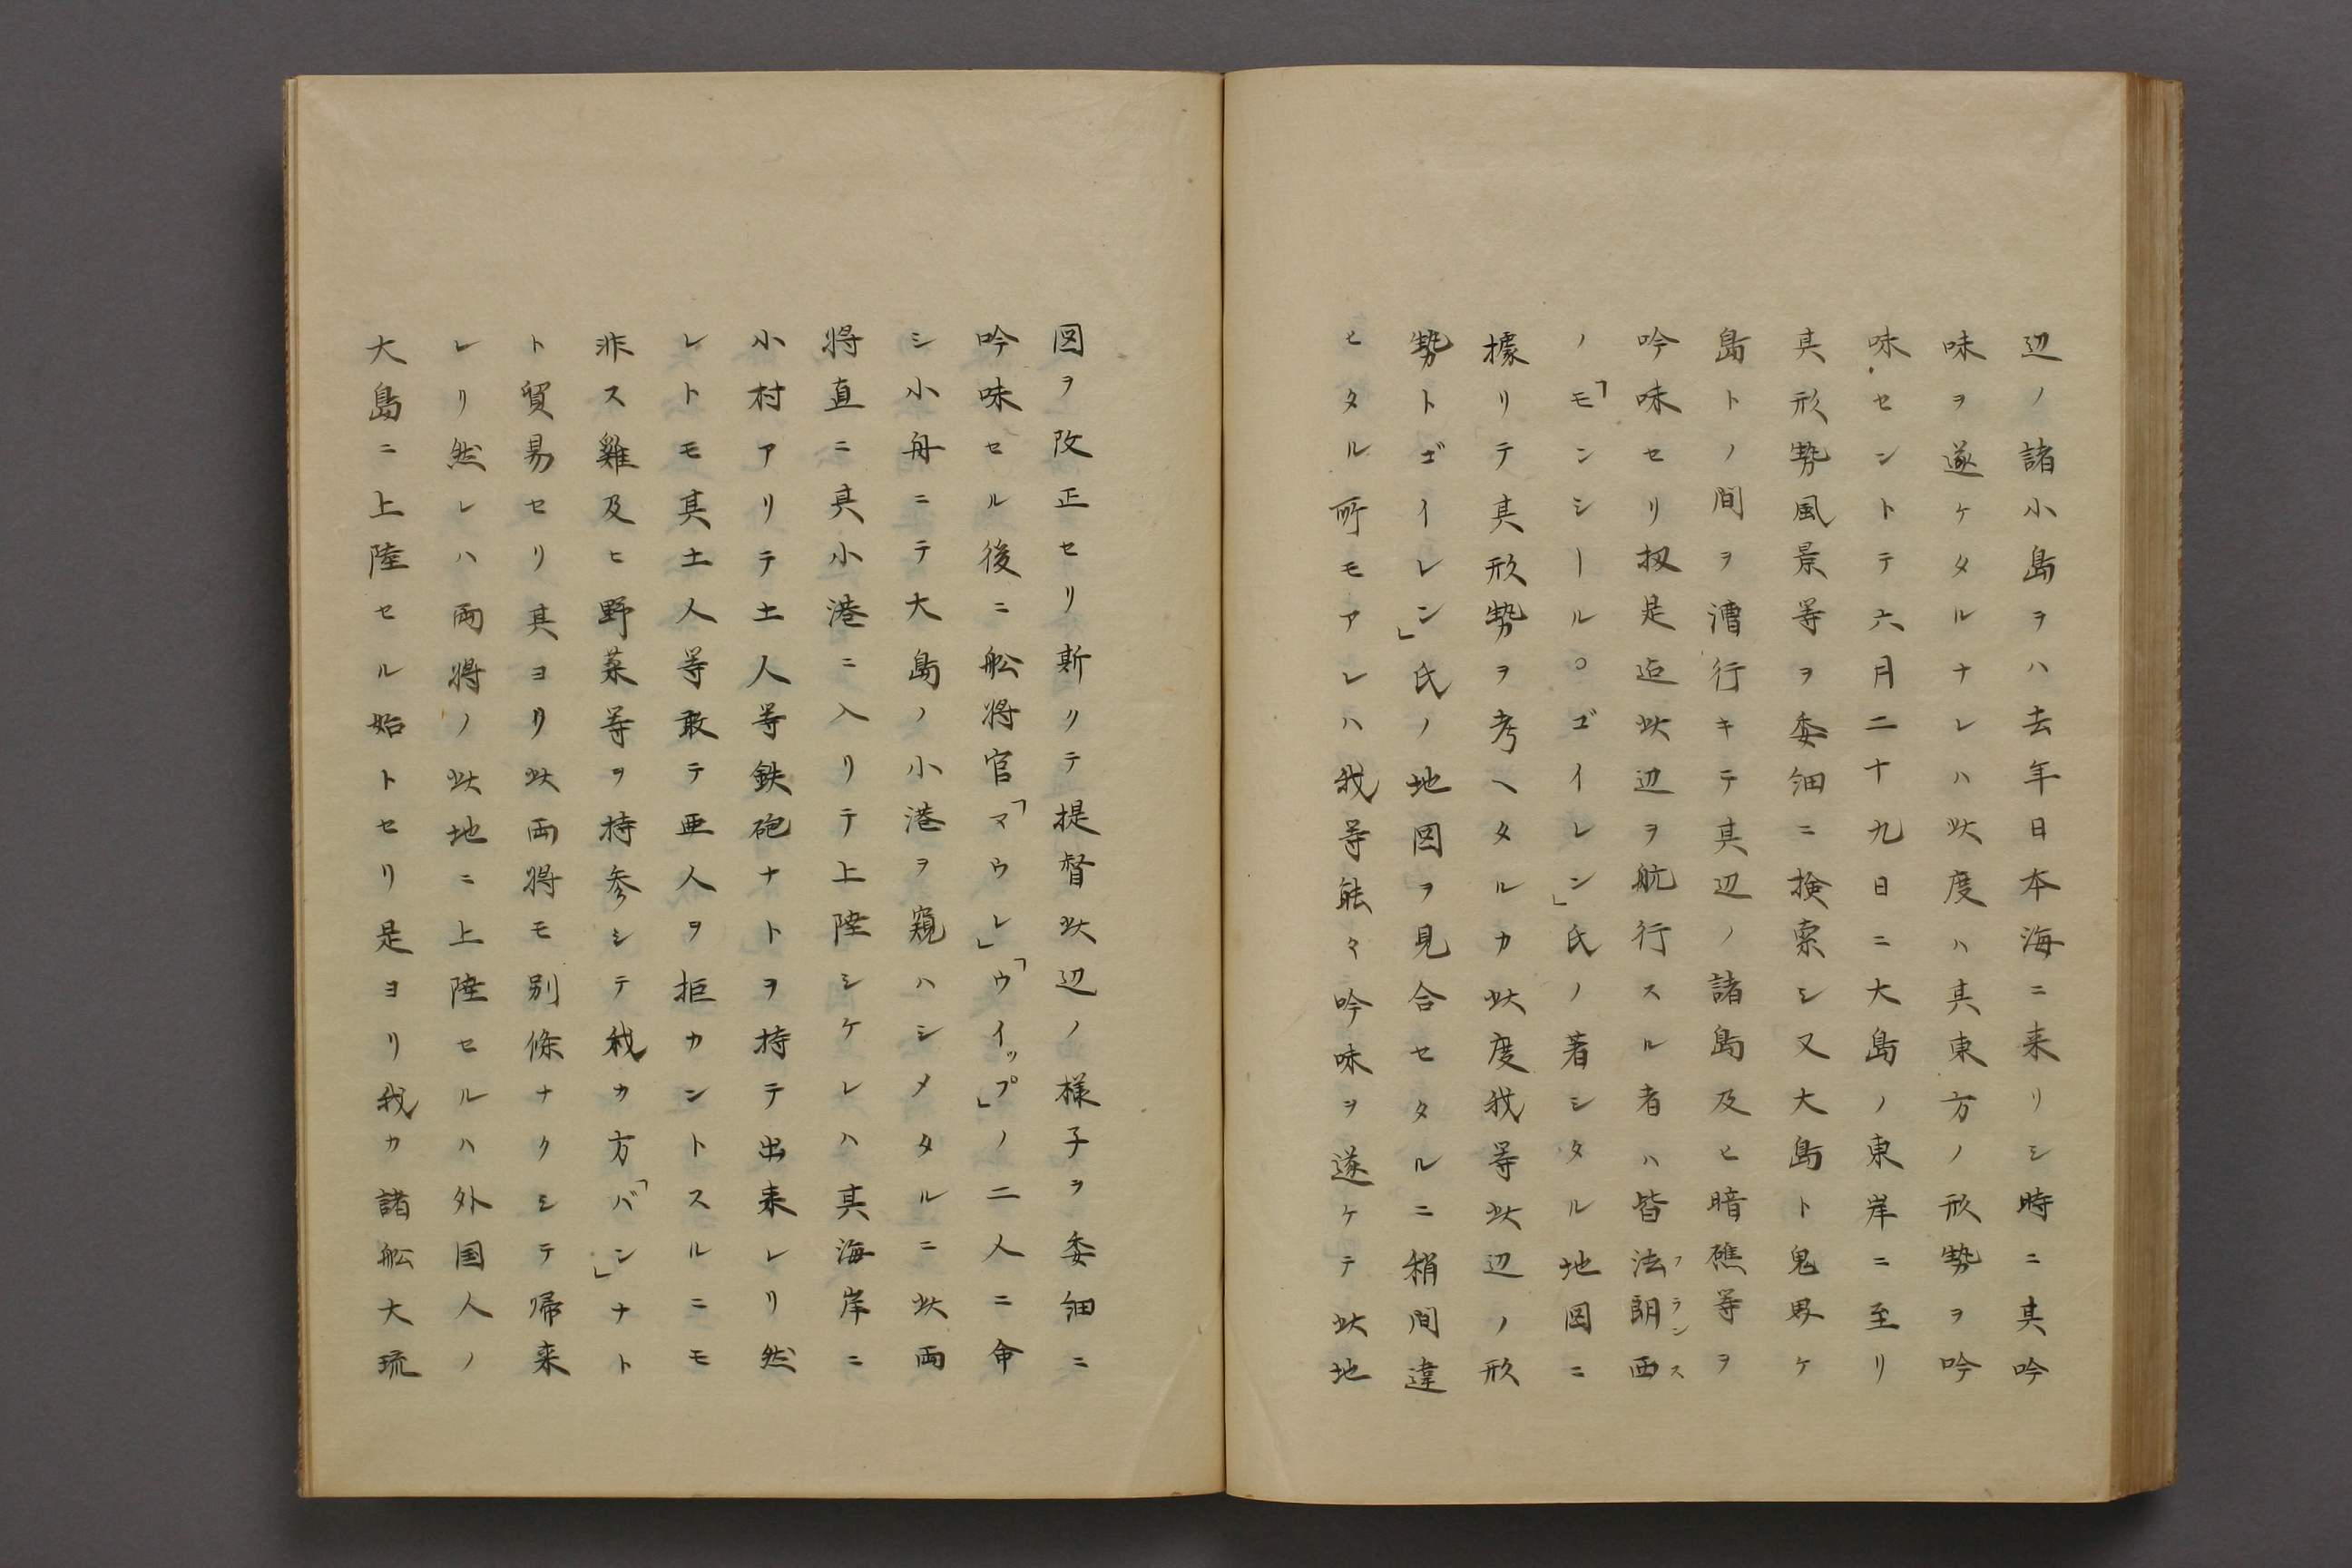 辺ノ諸小島ヲハ去年日本海ニ来リシ時ニ其吟
味ヲ遂ケタルナレハ此度ハ其東方ノ形勢ヲ吟
味セントテ六月二十九日ニ大島ノ東岸ニ至リ
其形勢風景等ヲ委細ニ検索シ又大島ト鬼界ケ
島トノ間ヲ漕行キテ其辺ノ諸島及ヒ暗礁等ヲ
吟味セリ扨是迄此辺ヲ航行スル者ハ皆法朗西フランス
ノ「モンシール。ゴイレン」氏ノ著シタル地図ニ
據リテ其形勢ヲ考ヘタルカ此度我等此辺ノ形
勢トゴイレン」氏ノ地図ヲ見合セタルニ稍間違
ヒタル所モアレハ我等能々吟味ヲ遂ケテ此地
図ヲ改正セリ斯リテ提督此辺ノ様子ヲ委細ニ
吟味セル後ニ舩将官「マウレ」「ウイップ」ノ二人ニ命
シ小舟ニテ大島ノ小港ヲ窺ハシメタルニ此両
将直ニ其小港ニ入リテ上陸シケレハ其海岸ニ
小村アリテ土人等鉄砲ナトヲ持テ出来レリ然
レトモ其土人等敢テ亜人ヲ拒カントスルニモ
非ス雞及ヒ野菜等ヲ持参シテ我カ方「バン」ナト
ト貿易セリ其ヨリ此両将モ別條ナクシテ帰来
レリ然レハ両将ノ此地ニ上陸セルハ外国人ノ
大島ニ上陸セル始トセリ是ヨリ我カ諸舩大琉